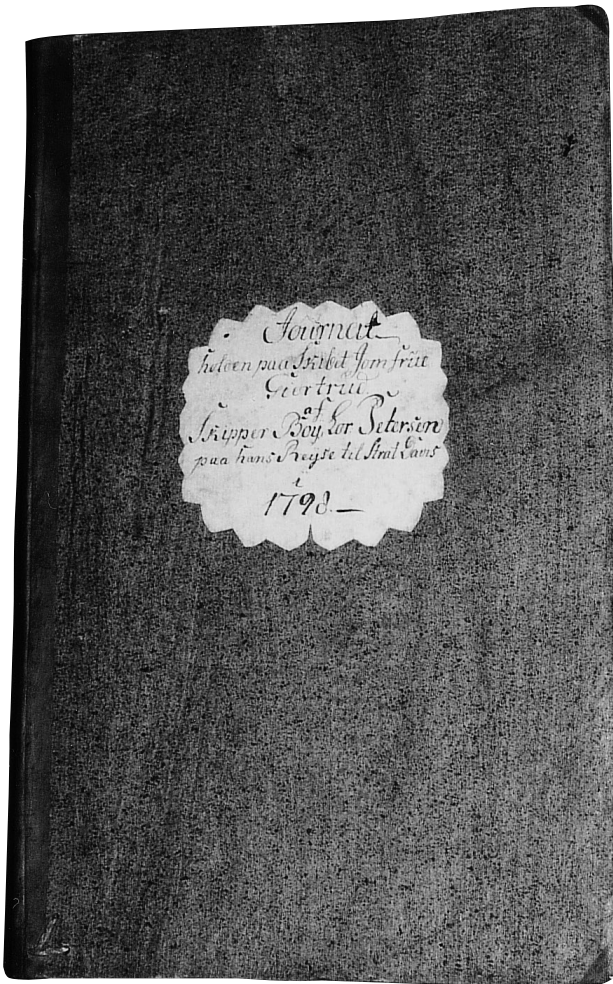 Journal
holden paa Skibet Jomfrue
Giertrud
af
Skipper Boÿ Lor Petersen
paa hans Reyse til Strat Davis
i
1798.—